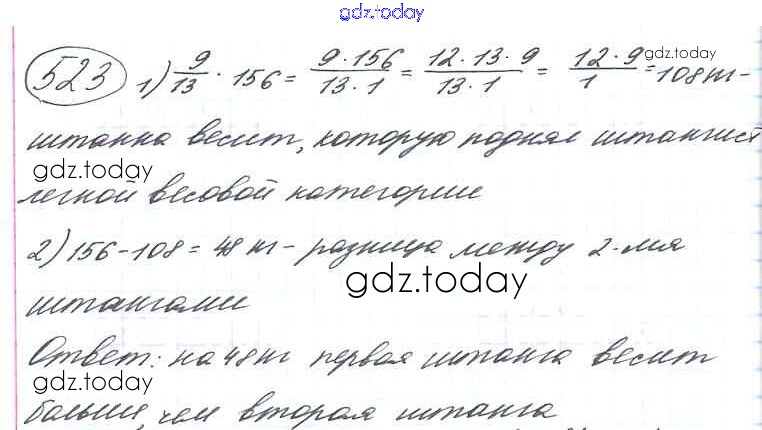 gdz.today
523 1) 9/13 · 156 = 9 · 156 / 13 · 1 = 12 · 13 · 9 / 13 · 1 = 12 · 9 / 1 = 108 кг -
gdz.today
штанга весит, которую поднял штангист
gdz.today
легкой весовой категории
2) 156 - 108 = 48 кг - разница между 2-мя
gdz.today
штангами
Ответ: на 48 кг первая штанга весит
gdz.today
больше, чем вторая штанга